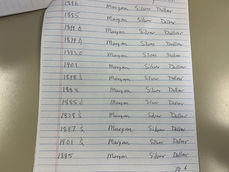 1886 Morgan Silver Dollar
1885 Morgan Silver Dollar
Morgan Silver Dollar
Morgan Silver Dollar
Morgan Silver Dollar
1901 Morgan Silver Dollar
Morgan Silver Dollar
1884 Morgan Silver Dollar
1885 Morgan Silver Dollar
1878 S Morgan Silver Dollar
1887 S Morgan Silver Dollar
1901 S Morgan Silver Dollar
1885 Morgan Silver Dollar